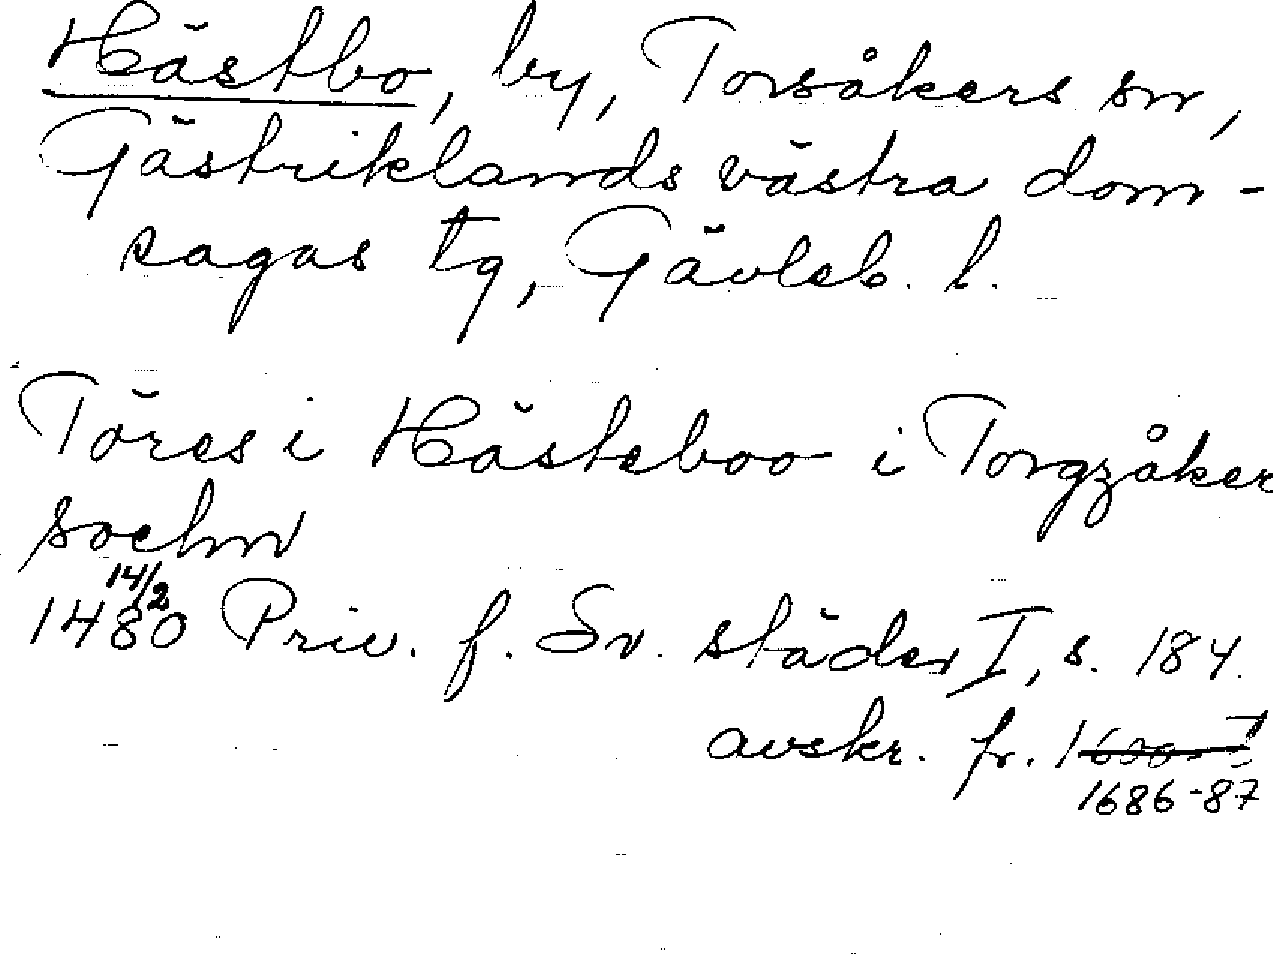 Hästbo, by, Torsåkers sn,
Gästriklands västra dom-
sagas tg, Gävleb. l.
Töres i Hästeboo i Torgzåker
sochn
14/2
1480 Priv. f. Sv. städer I, s. 184.
avskr. fr.
1686-87